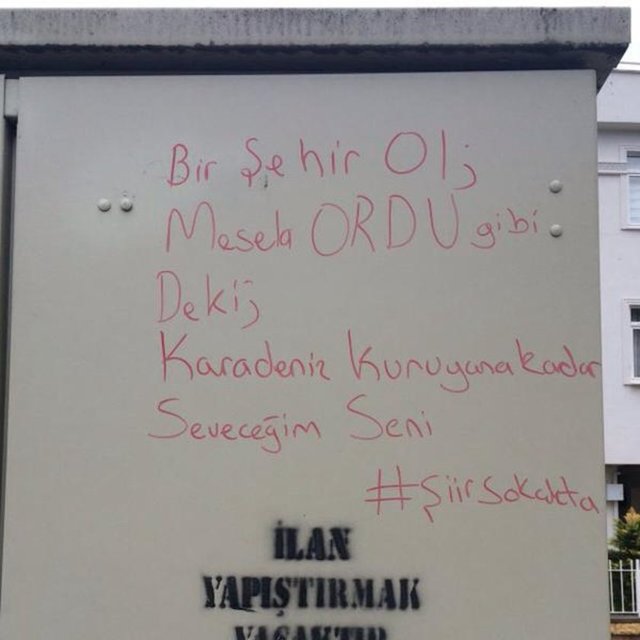 Bir Şehir Ol;
Mesela ORDU gibi
Deki;
Karadeniz Kuruyana kadar
Seveceğim Seni
#Şiirsokakta
İLAN
YAPIŞTIRMAK
YASAKTIR